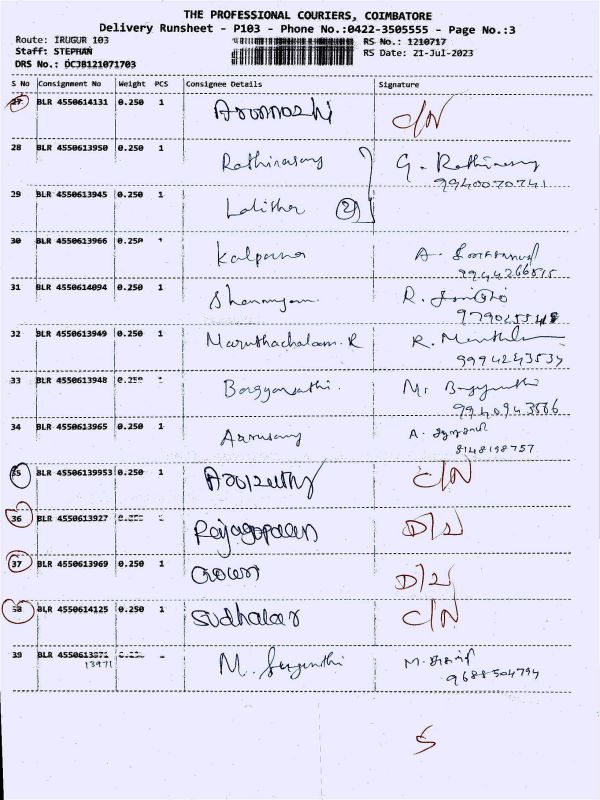 THE PROFESSIONAL COURIERS, COIMBATORE
Delivery Runsheet - P103 - Phone No.:0422-3505555 - Page No.:3
Route: IRUGUR 103 RS No.: 1210717
Staff: STEPHAN RS Date: 21-Jul-2023
DRS No.: DCJB121071703
S No Consignment No Weight PCS Consignee Details Signature
27 BLR 4550614131 0.250 1 C/N
28 BLR 4550613950 0.250 1 Rathinasamy G. Rathinasamy
9940070741
29 BLR 4550613945 0.250 1 Lalitha 2
30 BLR 4550613966 0.250 1 Kalpana A.
9944266815
31 BLR 4550614094 0.250 1 Shanmugam R.
32 BLR 4550613949 0.250 1 Maruthachalam. R R.
9994243534
33 BLR 4550613948 0.250 1 M.
9940943566
34 BLR 4550613965 0.250 1 A.
8148198757
35 BLR 45506139953 0.250 1 C/N
36 BLR 4550613927 Rajagopalan D/L
37 BLR 4550613969 0.250 1 Gowri D/L
38 BLR 4550614125 0.250 1 Sudhakar C/N
39 BLR 4550613971 M. M.
13971 9688504794
5